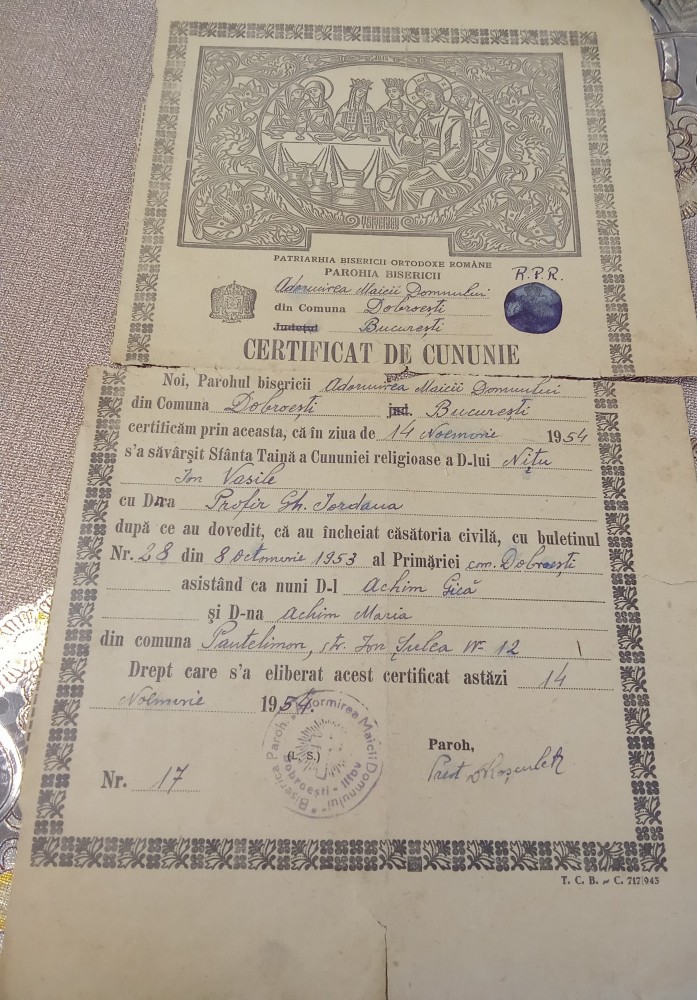 PATRIARHIA BISERICII ORTODOXE ROMÂNE
PAROHIA BISERICII
R.P.R.
Adormirea Maicii Domnului
din Comuna Dobroești
Județul București
CERTIFICAT DE CUNUNIE
Noi, Parohul bisericii Adormirea Maicii Domnului
din Comuna Dobroești jud. București
certificăm prin aceasta, că în ziua de 14 Noemvrie 1954
s'a săvârșit Sfânta Taină a Cununiei religioase a D-lui Nițu
Ion Vasile
cu D-ra Profir Gh. Iordana
după ce au dovedit, că au încheiat căsătoria civilă, cu buletinul
Nr. 28 din 8 Octomvrie 1953 al Primăriei com. Dobroești
asistând ca nuni D-l Achim Gică
și D-na Achim Maria
din comuna Pantelimon, str. Ion Șulea No 12
Drept care s'a eliberat acest certificat astăzi 14
Noemvrie 1954.
Biserica Paroh. Adormirea Maicii Domnului
Dobroești - Ilfov
(L. S.)
Paroh,
Nr. 17
Preot
T. C. B. – C. 717/945